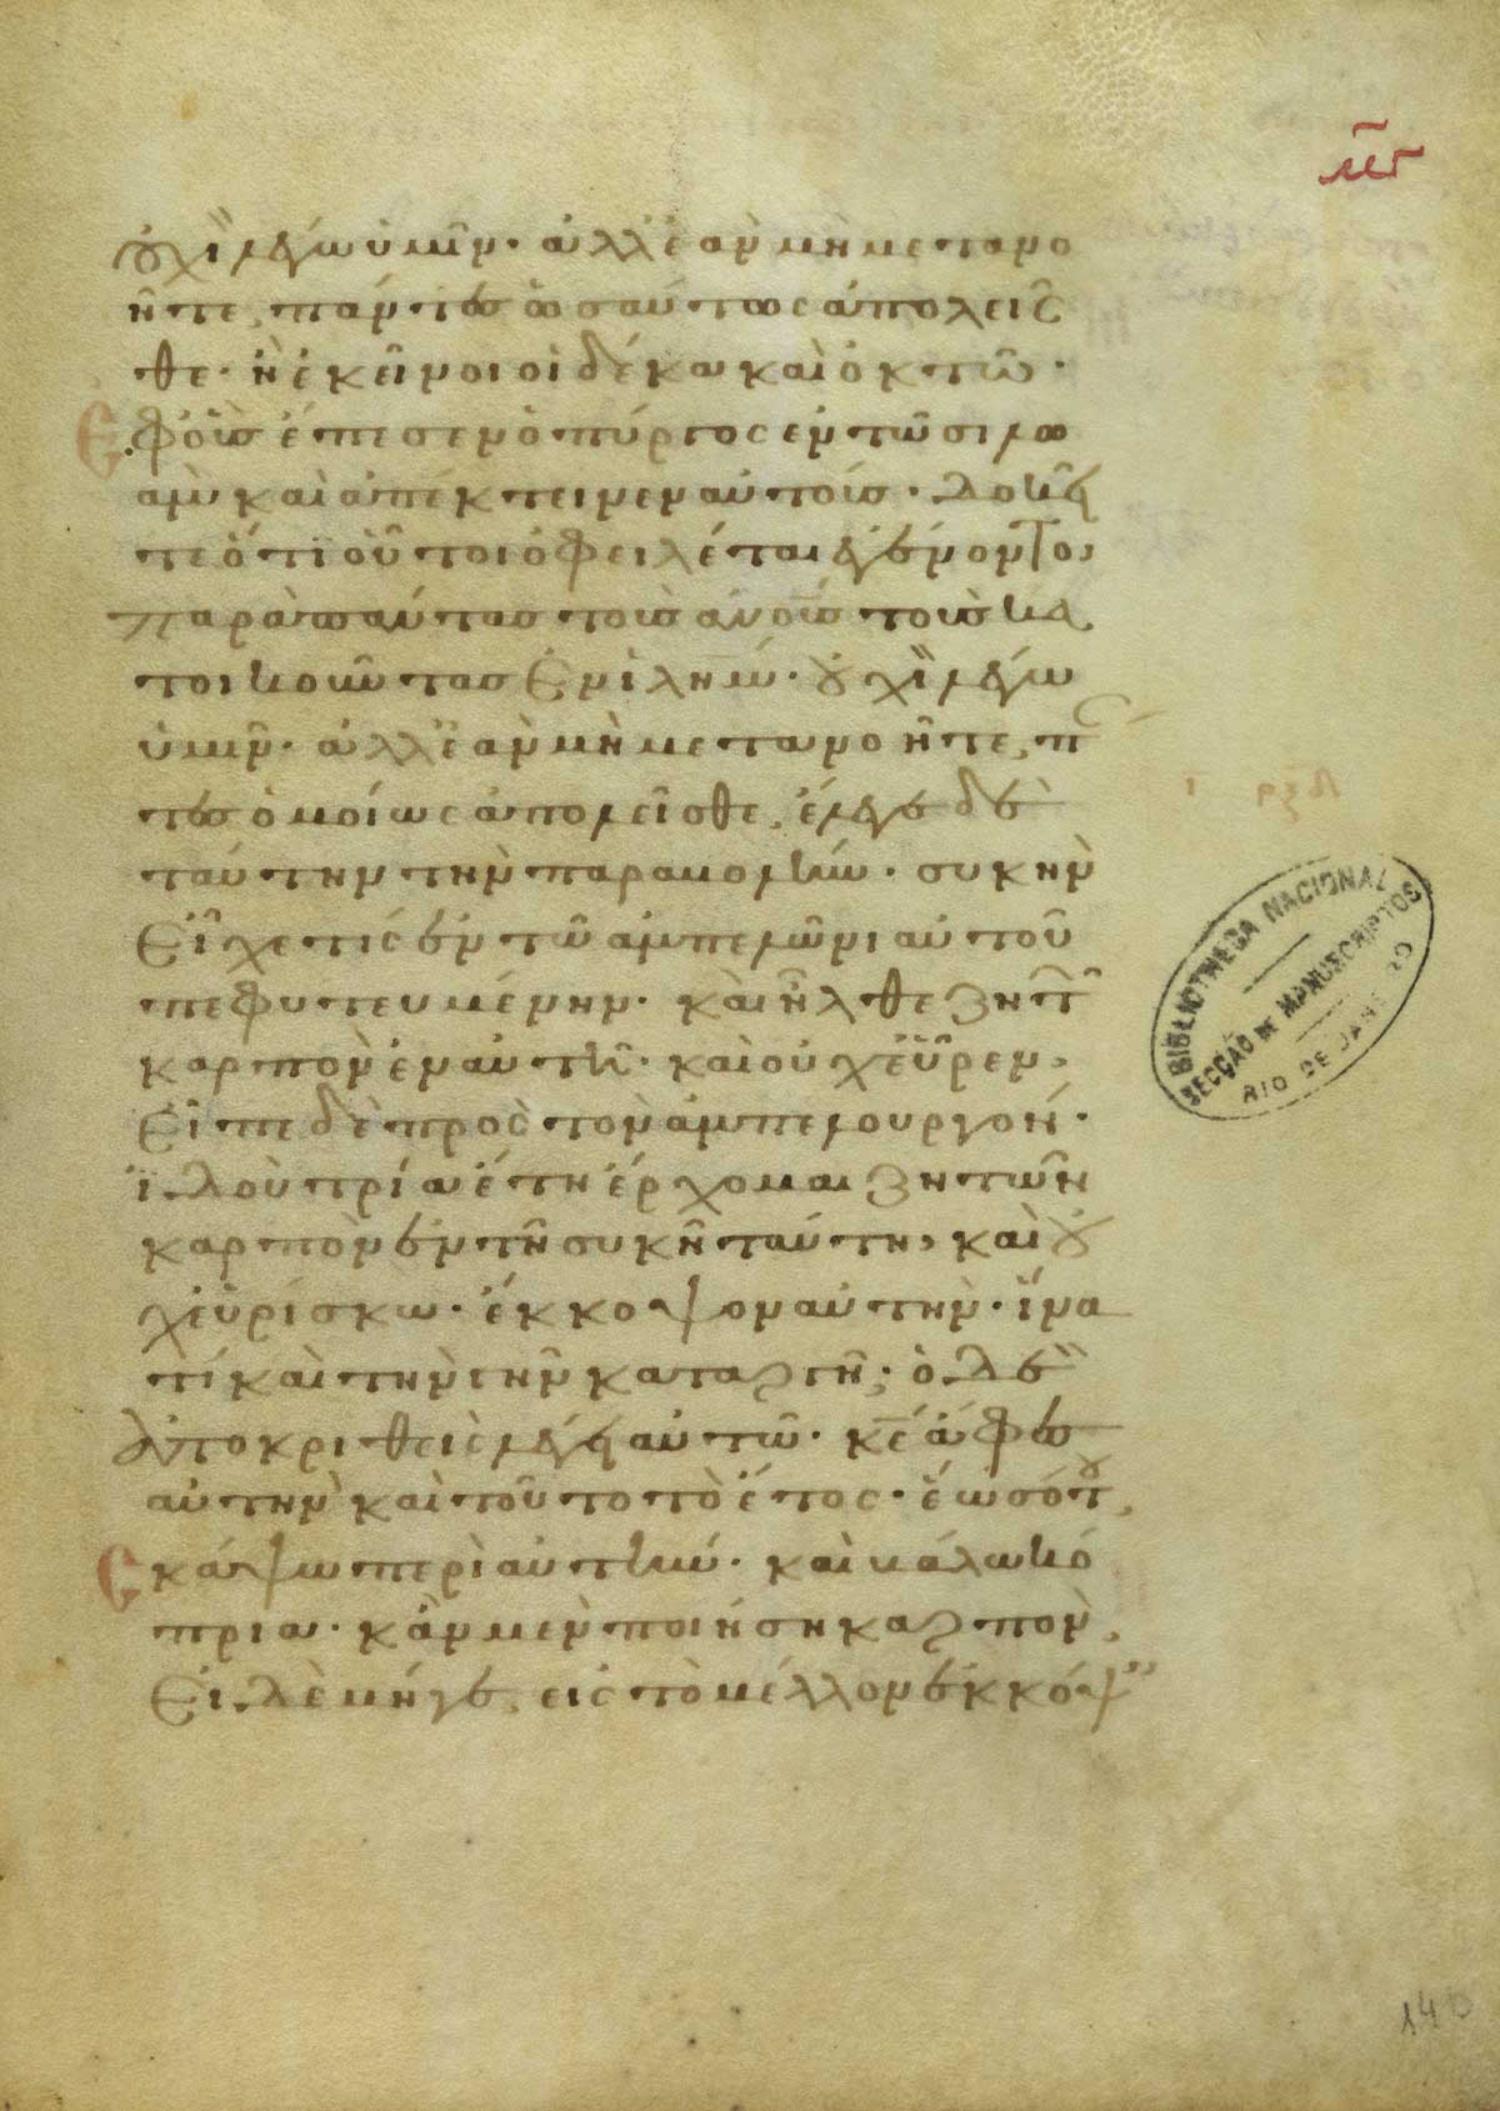 ρμγ
οὐχὶ λέγω ὑμῖν· ἀλλ' ἐὰν μὴ μετανο
ῆτε, πάντες ὡσαύτως ἀπολεῖσ
θε· ἢ ἐκεῖνοι οἱ δέκα καὶ ὀκτὼ·
Ἐφ' οὓς ἔπεσεν ὁ πύργος ἐν τῶ σιλω
ὰμ καὶ ἀπέκτεινεν αὐτούς· δοκεῖ
τε ὅτι οὗτοι ὀφειλέται ἐγένοντο
παρὰ πάντας τοὺς ἀνους τοὺς κα
τοικοῦντας ἐν ἱλημ· οὐχὶ λέγω
ὑμῖν· ἀλλ' ἐὰν μὴ μετανοῆτε, πάν
τες ὁμοίως ἀπολεῖσθε, ἔλεγε δὲ
ταύτην τὴν παραβολήν· συκὴν
εἶχε τίς ἐν τῶ ἀμπελῶνι αὐτοῦ
πεφυτευμένην· καὶ ἦλθε ζητῶν
καρπὸν ἐν αὐτῆ· καὶ οὐχ εὗρεν,
εἶπε δὲ πρὸς τὸν ἀμπελουργόν·
ἰδοὺ τρία ἔτη ἔρχομαι ζητῶν
καρπὸν ἐν τῆ συκῆ ταύτη, καὶ οὐ
χ εὑρίσκω· ἔκκοψον αὐτὴν· ἵνα
τί καὶ τὴν γῆν καταργῆ; ὁ δὲ
ἀποκριθεὶς λέγει αὐτῶ· κε ἄφες
αὐτὴν καὶ τοῦτο τὸ ἔτος· ἕως ὅτου
σκάψω περὶ αὐτὴν· καὶ βάλω κό
πρια· κἂν μὲν ποιήση καρπὸν,
εἰ δὲ μήγε, εἰς τὸ μέλλον ἐκκόψεις
BIBLIOTHECA NACIONAL
SECÇÃO DE MANUSCRIPTOS
RIO DE JANEIRO